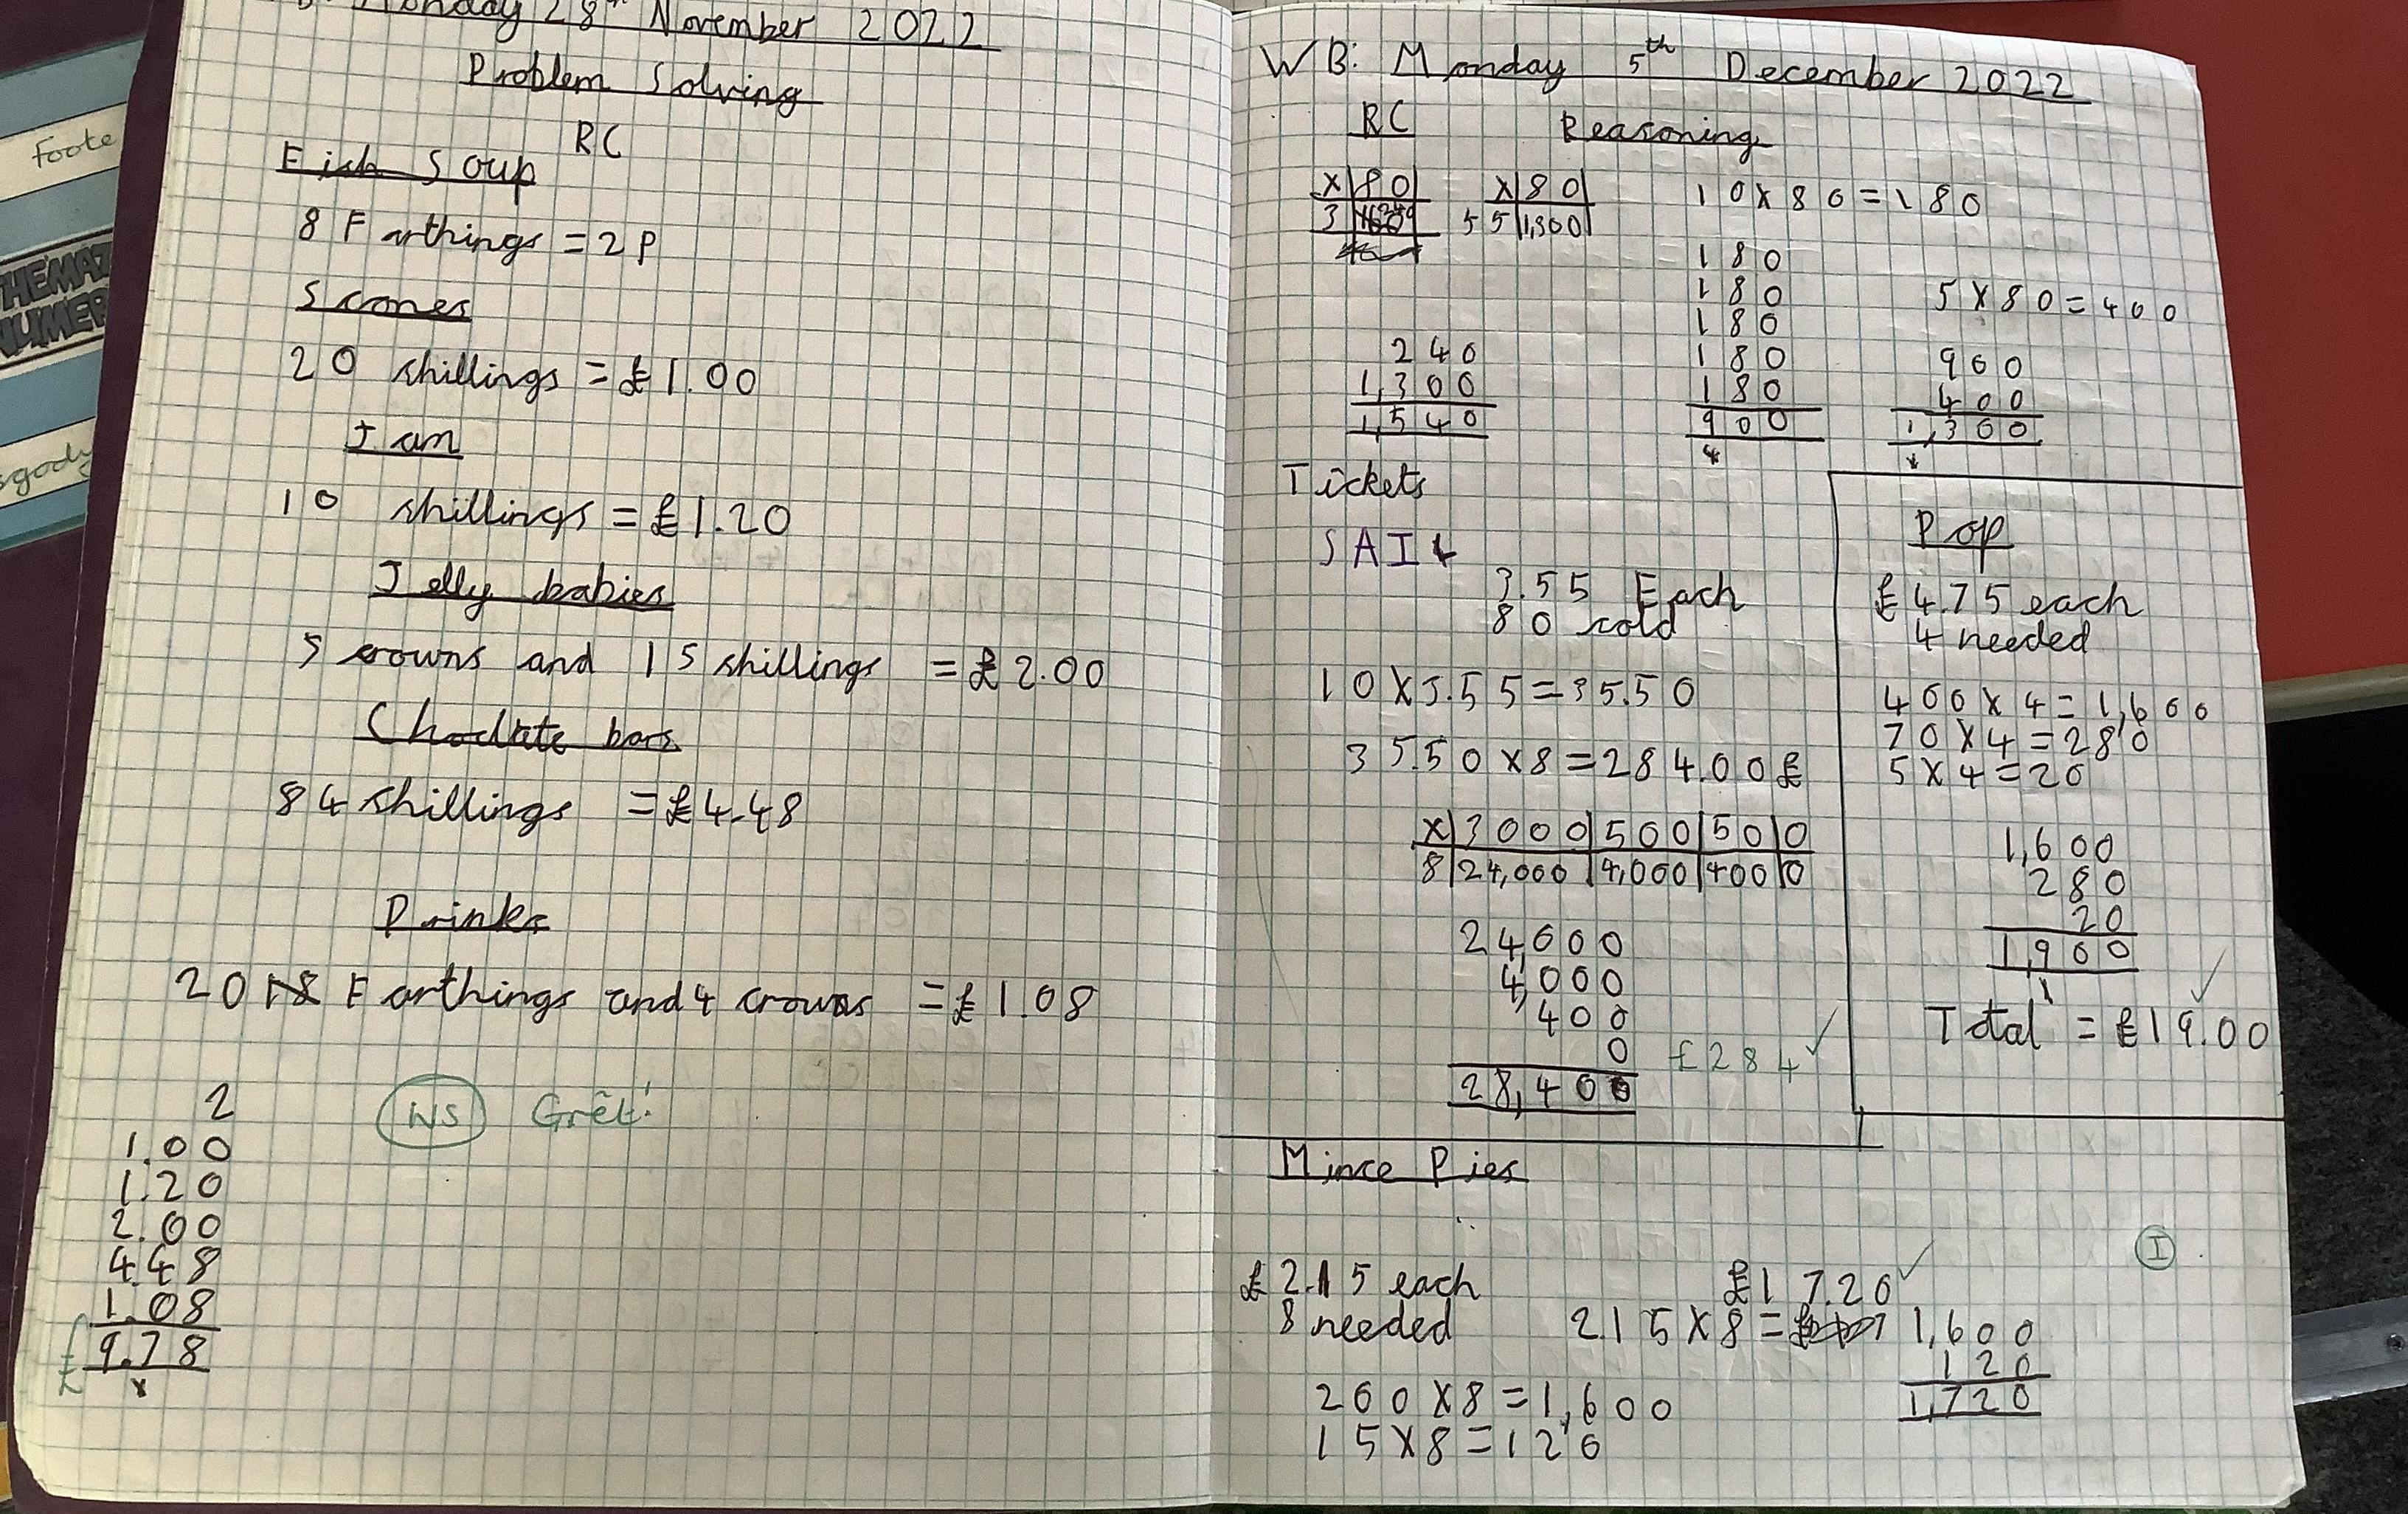 Monday 28th November 2022
Problem Solving
RC
Fish Soup
8 Farthings = 2P
Scones
20 shillings = £1.00
Jam
10 shillings = £1.20
Jelly babies
5 crowns and 15 shillings = £2.00
Choclate bars
84 shillings = £4.48
Drinks
20 Farthings and 4 crowns = £1.08
2
1.00
1.20
2.00
4.48
1.08
£ 9.78
NS Grêt!
WB: Monday 5th December 2022
RC Reasoning
X 80
3 240
X 80
55 1,300
10 X 80 = 180
180
180
180
180
180
900
5 X 80 = 400
900
400
1,300
240
1,300
1,540
Tickets
SAIL
3.55 Each
80 sold
10 X 3.55 = 35.50
35.50 X 8 = 284.00£
X 3000 500 50 0
8 24,000 4,000 400 0
24,000
4,000
400
0
28,400
£284 ✓
Pop
£4.75 each
4 needed
400 X 4 = 1,600
70 X 4 = 280
5 X 4 = 20
1,600
280
20
1,900
1
Total = £19.00 ✓
Mince Pies
£2.15 each
8 needed
£17.20 ✓
2.15 X 8 =
1,600
120
1,720
200 X 8 = 1,600
15 X 8 = 120
I
Foote
THEMAT
NUMER
sgody